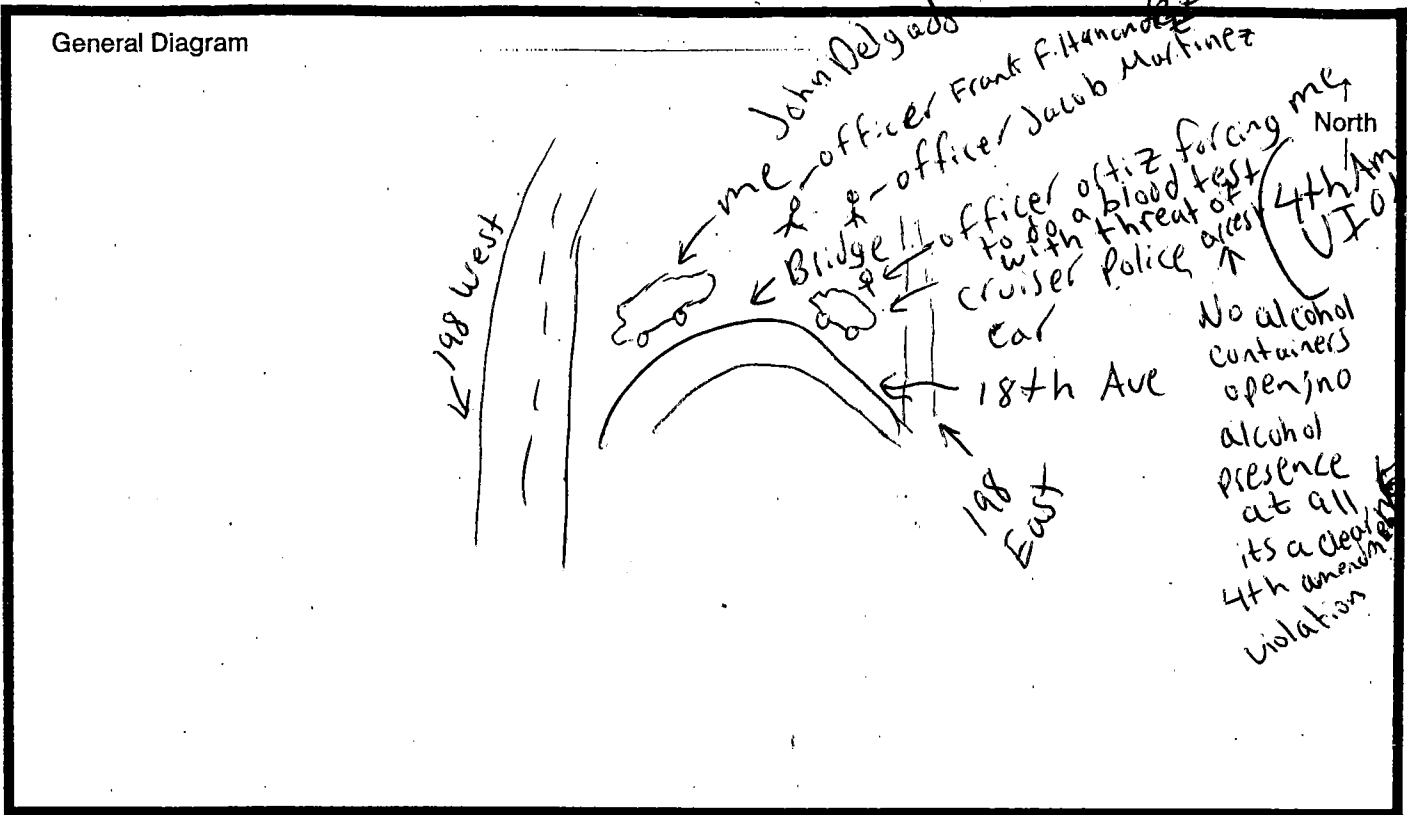 General Diagram
John Delgado
me
officer Frank F.
officer Jacob Martinez
officer ortiz forcing me
to do a blood test
with threat of
arrest
Bridge
cruiser police
car
18th Ave
198 West
198
East
North
4th Am
VIOL
No alcohol
containers
open, no
alcohol
presence
at all
its a clear
4th amendment
violation